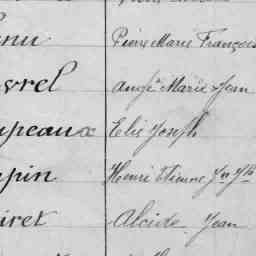 nu Pierre Marie François
vrel Ange Marie Jean
upeaux Elie Joseph
pin Henri Etienne Jn Jh
iret Alcide Jean